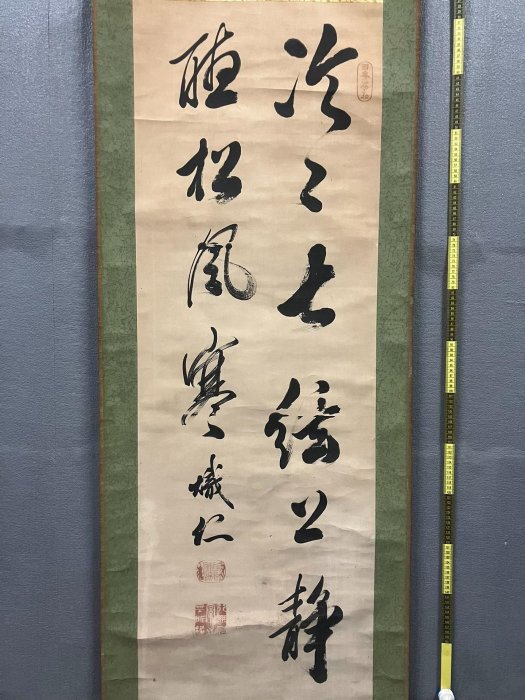 冷〻七絃上静
聴松風寒熾仁